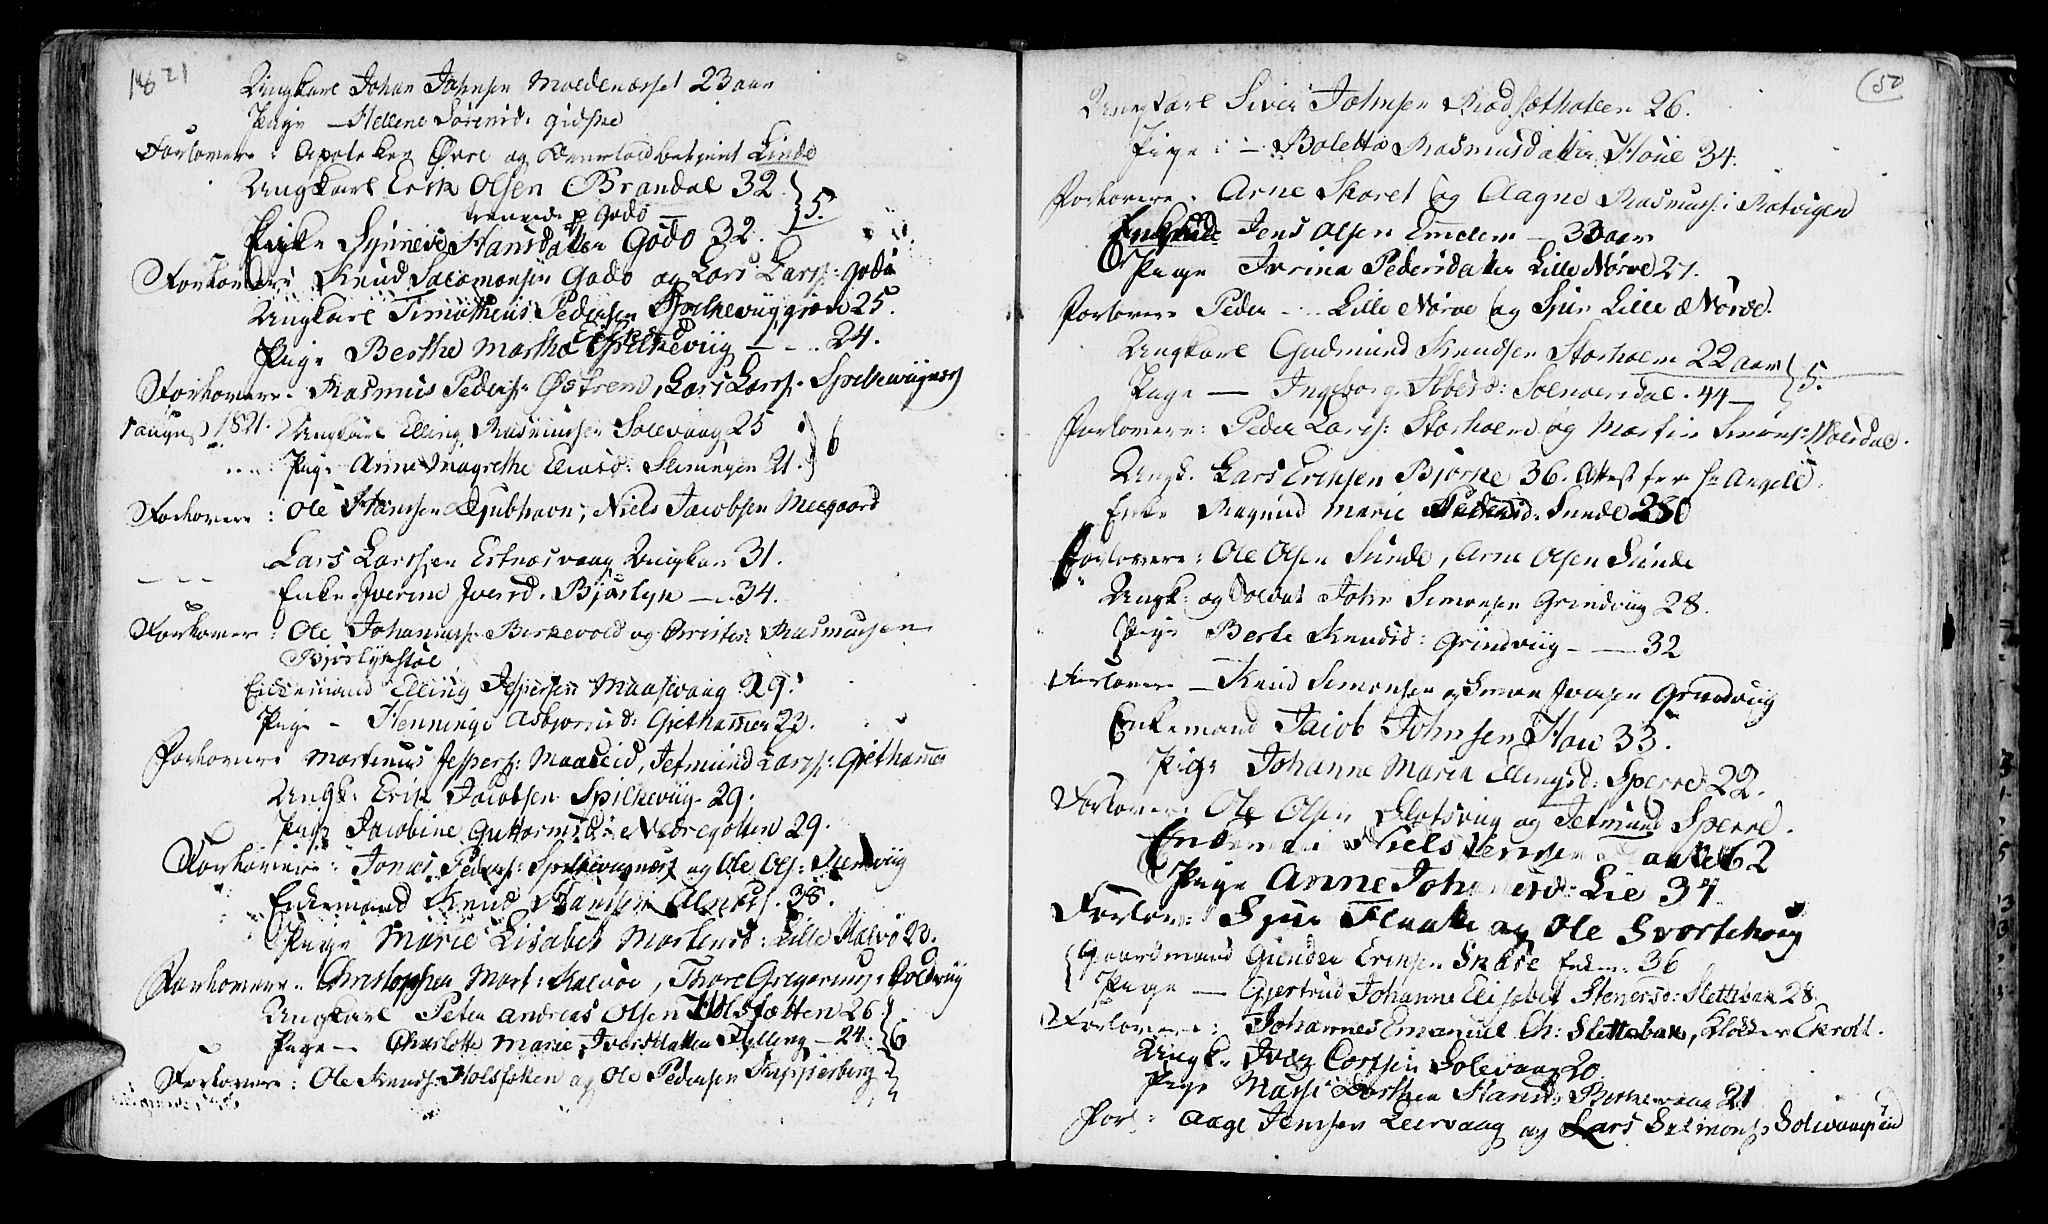 1821
Ungkarl Johan Johnsen Moldenæsset 23 aar
Pige — Hellene Sørensd: gidske
Forlovere: Apoteker Øvre og Linde
Ungkarl Erik Olsen Brandal 32 } 5.
p Godø
Pige Synneve Hansdatter Godø 32.
Forlovere: Knud Salomonsen Godø og Lars Larss: Godø
Ungkarl Timotheus Pedersen 25.
Pige Berthe Martha Spilkeviig — 24.
Forlovere. Rasmus Peders: Østrem, Lars Larss: Spilkeviignes
august 1821. Ungkarl Elling Rasmussen Solevaag 25 } 6
Pige Anne Magrethe Eliasd: Slemingen 21.
Forlovere: Ole Hanssen Djubhavn, Niels Jacobsen Meegaard
Lars Larssen Estnæsvaag Ungkar 31.
Enke Iverine Iversd. Bjørlyk — 34.
Forlovere: Ole Johanness: Birkevold og Christen Rasmussen
Bjørlykstøl
Enkemand Elling Jespersen Maasevaag 29.
Pige — Henninge Asbjørnsd: Gjethammer 23.
Forlovere Martinus Jespers: Maaseid, Jetmund Larss: Gjethammer
Ungk: Erik Jacobsen Spilkeviig 29.
Pige Jacobine Guttormsd: Nedregotten 29.
Forlovere: Jonas Peders: Spilkeviignes og Ole Ols:
Enkemand Knud Hanssen Alnes. 38.
Pige Marie Lisabet Mortensd: Lille Kalvø 23.
Forlovere. Christopher Mort: Kalvøe, Thore Gregorius:
Ungkarl Peter Andreas Olsen Holsfætten 26 } 6
Pige — Charlotte Marie Iversdatter Fylling — 24.
Forlovere: Ole Knuds: Holsfætten og Ole Pedersen Kipperberg
50
Ungkarl Siver Johnsen 26.
Pige — Boletta Rasmusdatter Houe 34.
Forlovere: Arne Skoret og Aagne Rasmuss: Ratvigen
Enkemd Jens Olsen Emdem — 33 aar
Pige Ivrina Pedersdatter Lille Nørve 27.
Forlovere Peder — Lille Nørve og Sjur Lille Nørve.
Ungkarl Gudmund Knudsen Storholm 22 aar } 5.
Pige — Ingeborg 44
Forlovere: Peder Larss: Storholm og Martin Simons:
Ungk. Lars Eriksen Bjørke 36. Attest fra Hr Angell.
Enke Ragnild Marie Pedersd: Sunde 28
Forlovere: Ole Olsen Sunde, Arne Olsen Sunde
Ungk: og Soldat John Simonsen Grindviig 28.
Pige Berte Knudsd: Grindviig — 32
Forlovere — Knud Simonsen og Simon Iversen Grindviig
Enkemand Jacob Johnsen Houe 33.
Pige Johanne Maria Ellingsd: Sperre 22.
Forlovere: Ole Olsen Slotsviig og Jetmund Sperre.
Enkemand Niels Flaate 62
Pige Anne Johannesd: Lie 34.
Forlov: Sjur Flaate og Ole Svortehoug
Gaardmand Gunder Eriksen Skare Enkem: 36
Pige — Gjertrud Johanne Elisabet Stenersd: Slettebak 28.
Forlovere: Johannes Emanuel Ch: Slettebak, Ekrott.
Ungk: Iver Solevaag 20
Pige Marte Dorthea Hansd: Birkevaag 21
Forl: Aage Jenssen Leervaag og Lars Salmons: Solevaagseid